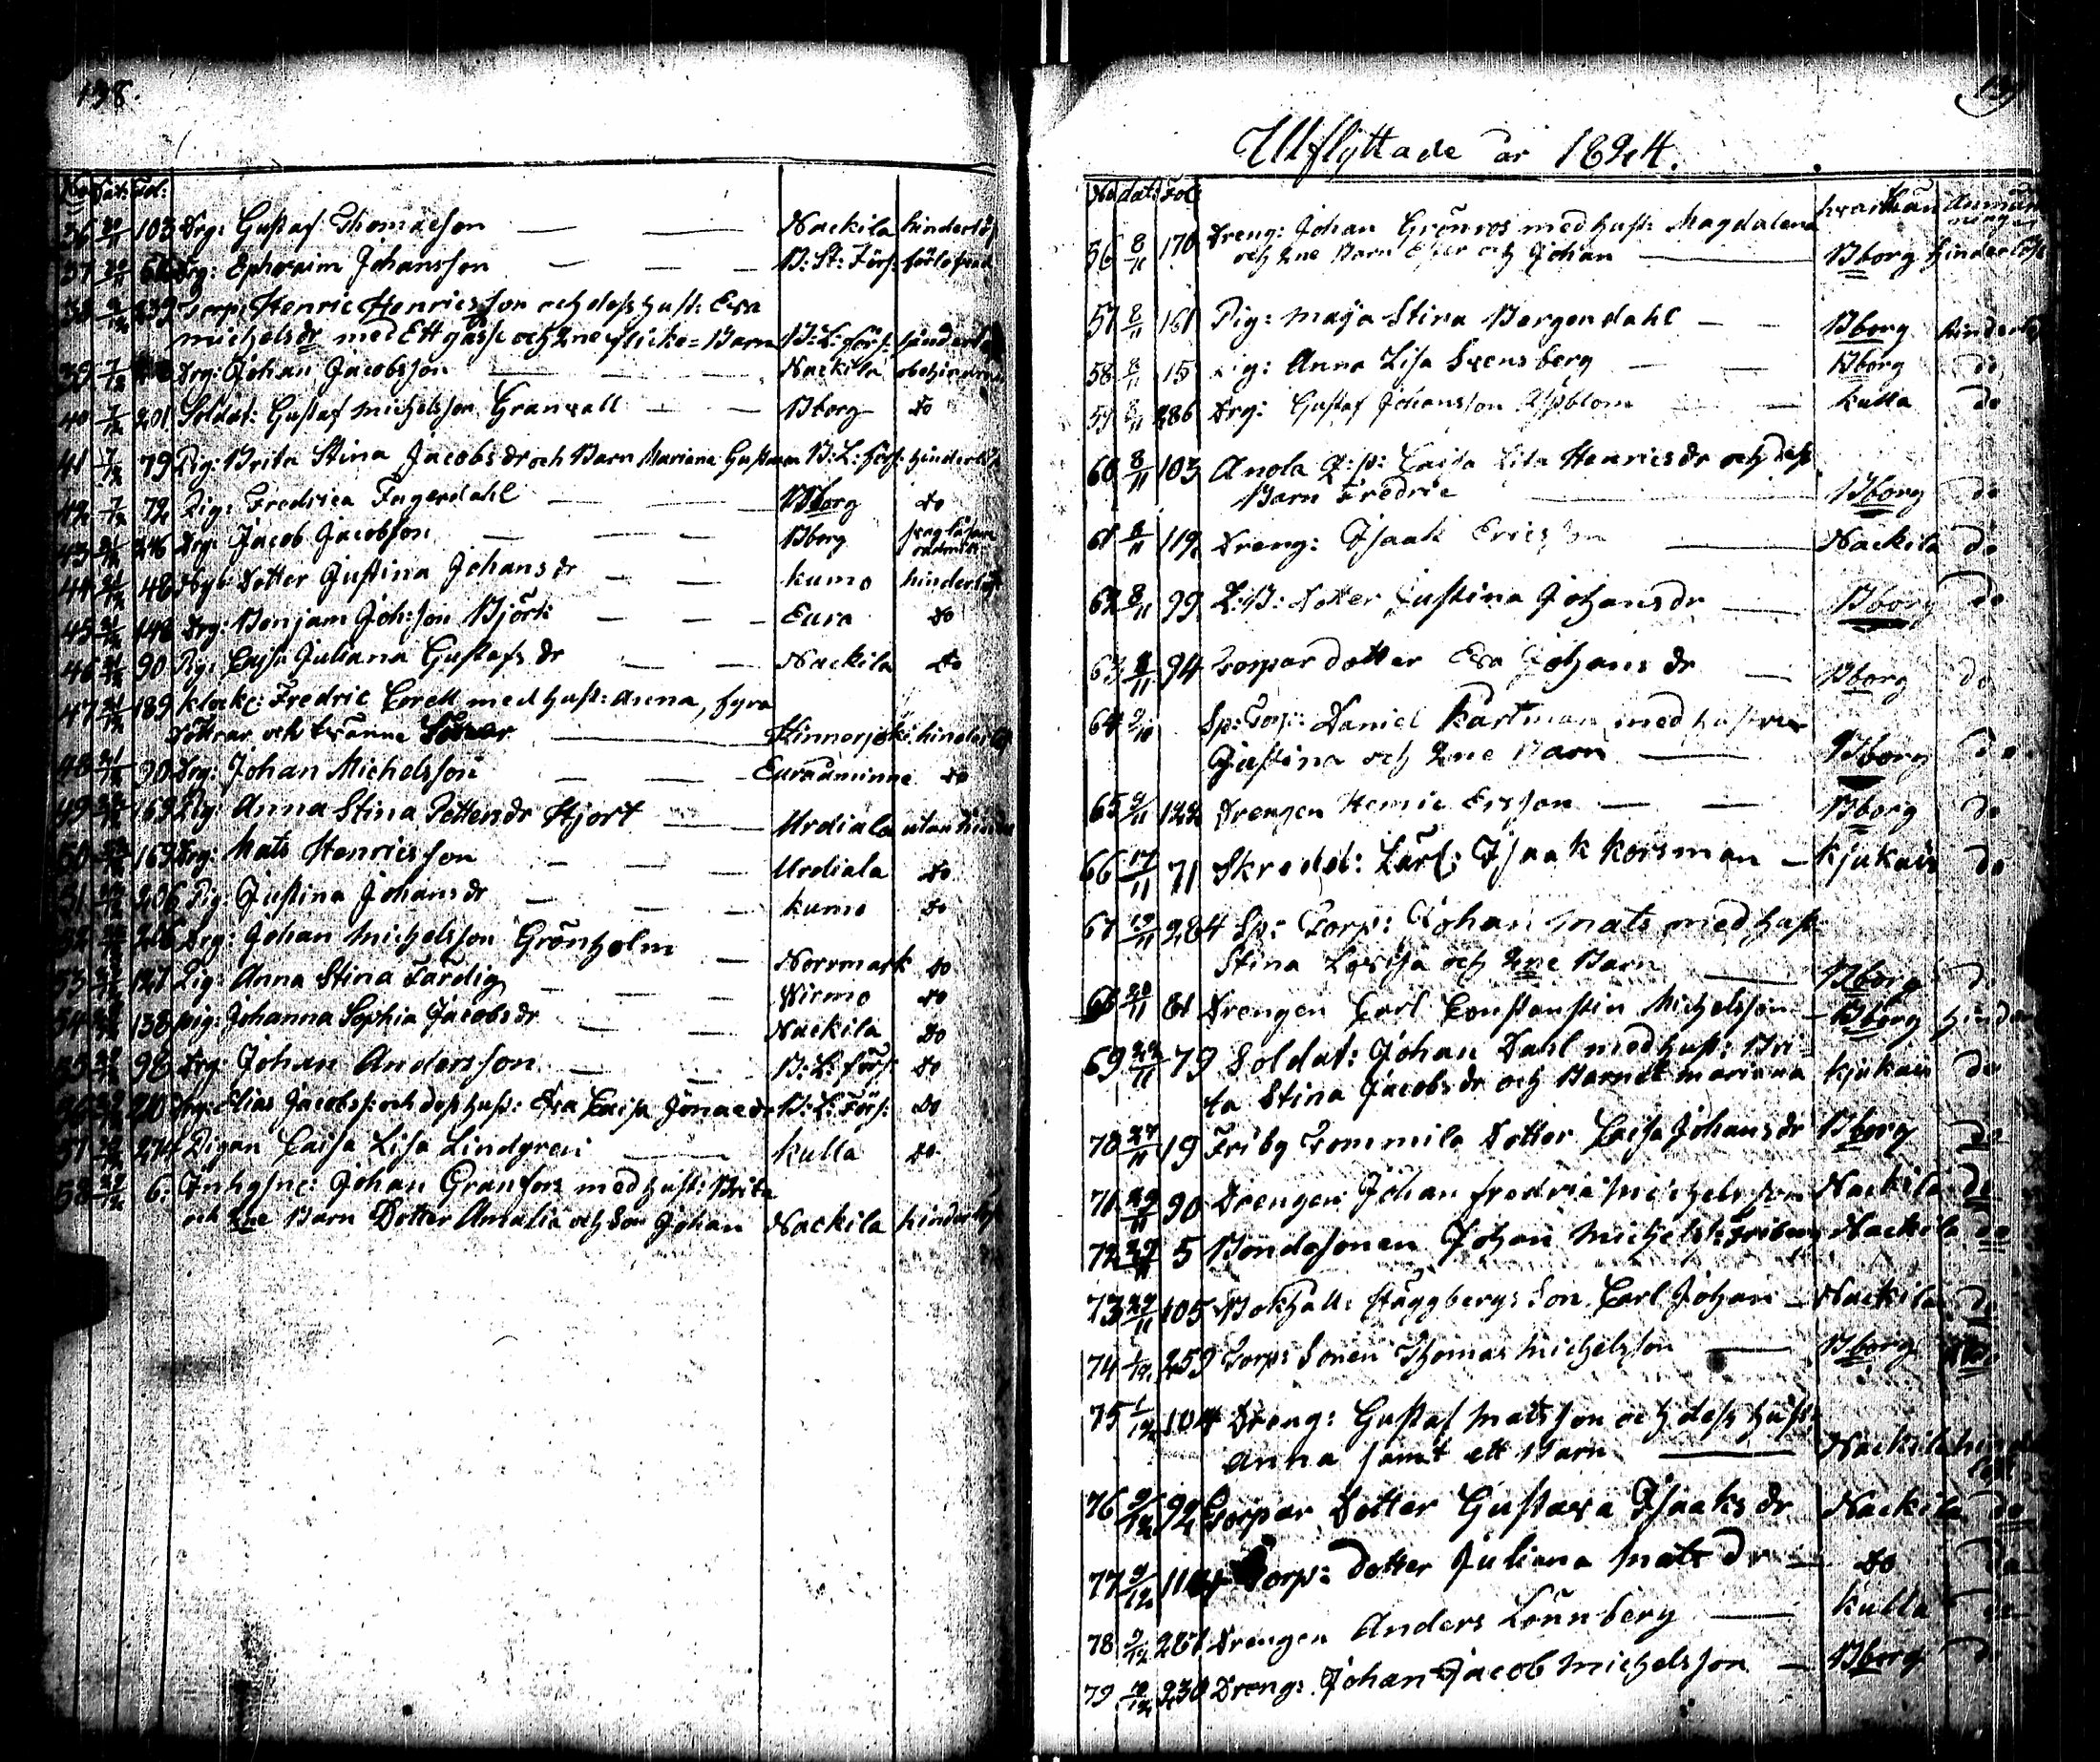 138.
No dat: Fol:
36 20/11 103 Drg: Gustaf Thomasson — — — Nackila hinderlös
37 20/11 Drg: Ephraim Johansson — — — B: St: Förs:
38 639 Torp: Henric Henricsson och dess hust: Eva
Michelsdr med Ett gosse och 2ne flicke=Barn B: L: förs:
39 7/12 Drg: Johan Jacobsson — — — Nackila obehindrad
40 7/12 201 Soldat: Gustaf Michelsson Granvall — — Bborg do
41 7/12 79 Pig: Brita Stina Jacobsdr och Barn Mariana B: L: förs: hinderlös
42 7/12 72 Pig: Fredrica Fagerdahl — — Bborg do
43 21/12 246 Drg: Jacob Jacobsson — — — Bborg
44 21/12 48 Nyb: Dotter Justina Johansdr — — kumo hinderlös
45 21/12 148 Drg: Benjam Joh:son Björk — — — Eura do
46 21/12 90 Pig: Cajsa Juliana Gustafsdr — — Nackila do
47 21/12 189 klock: Fredric Corell med hust: Anna, fyra
döttrar och tvänne Söner — Kinnerjocki hinderlös
48 21/12 90 Drg: Johan Michelsson — — — Euraåminne do
49 163 Pig: Anna Stina Pettersdr Hjort — — Urdiala utan hinder
50 163 Drg: Mats Henricsson — — Urdiala do
51 206 Pig: Justina Johansdr — — — kumo do
52 Drg: Johan Michelsson Grönholm — Norrmark do
53 127 Pig: Anna Stina Färdig — — — Wirmo do
54 138 pig: Johanna Sophia Jacobsdr — — Nackila do
55 98 Drg: Johan Andersson — — B: L: förs: do
56 Drg: Elias Jacobss: och dess hust: Eva Caisa Jonaedr B: L: Förs: do
57 274 Pigan Caisa Lisa Lindgren — — kulla do
58 6: Inhysnc: Johan Granfors med hust: Brita
och 2ne Barn Dotter Amalia och Son Johan Nackila hinderlös
139
Utflyttade år 1824.
No dat: Fol: hvarthän Anmärkning
56 8/11 170 Dreng: Johan Grönros med hust: Magdalena
och 2ne Barn Ester och Johan — Bborg hinderlöst
57 8/11 161 Pig: Maja Stina Bergendahl — — Bborg hinderlös
58 8/11 15 Pig: Anna Lisa Svensberg — — Bborg do
59 8/11 286 Drg: Gustaf Johansson Aspblom — — kulla do
60 8/11 103 Anola Q:p: Caisa Lisa Henricsdr och dess
Barn Fredric — Bborg do
61 8/11 119 Dreng: Isaak Ericsson — Nackila do
62 8/11 99 L:B: Dotter Justina Johansdr — Bborg do
63 8/11 94 Torpar dotter Eva Johansdr — Bborg do
64 9/10 Sp: Torp: Daniel Kartman med hustru
Justina och 2ne Barn — Bborg do
65 9/11 122 Drengen Henric Ersson — — Bborg do
66 17/11 71 Skredd: Lärl: Isaak Korsman — Kjukais do
67 19/11 284 Sp: Torp: Johan Mats med hust
Stina Lovisa och 2ne Barn — Bborg d
68 20/11 81 Drengen Carl Constanstin Michelsson — Bborg hinder
69 22/11 79 Soldat: Johan Dahl med hust: Bri=
ta Stina Jacobsdr och Barnet Mariana kjukais do
70 27/11 19 Friby Tommila Dotter Caisa Johansdr Bborg do
71 29/11 90 Drengen Johan Fredric Michelsson Nackila do
72 29/11 5 Bondesonen Johan Michelss: Friberg Nackila do
73 29/11 105 Bokhåll: Häggbergs Son Carl Johan — Nackila do
74 1/12 259 Torp: Sonen Thomas Michelsson — Bborg do
75 1/12 104 Dreng: Gustaf Matsson och dess hust:
Anna samt ett Barn — Nackila hinder
löst
76 9/12 92 Torpar Dotter Gustava Isaksdr Nackila do
77 9/12 Torp: dotter Juliana Matsdr — do do
78 9/12 287 Drengen Anders Lönnberg — kulla do
79 230 Dreng: Johan Jacob Michelsson — Bborg d